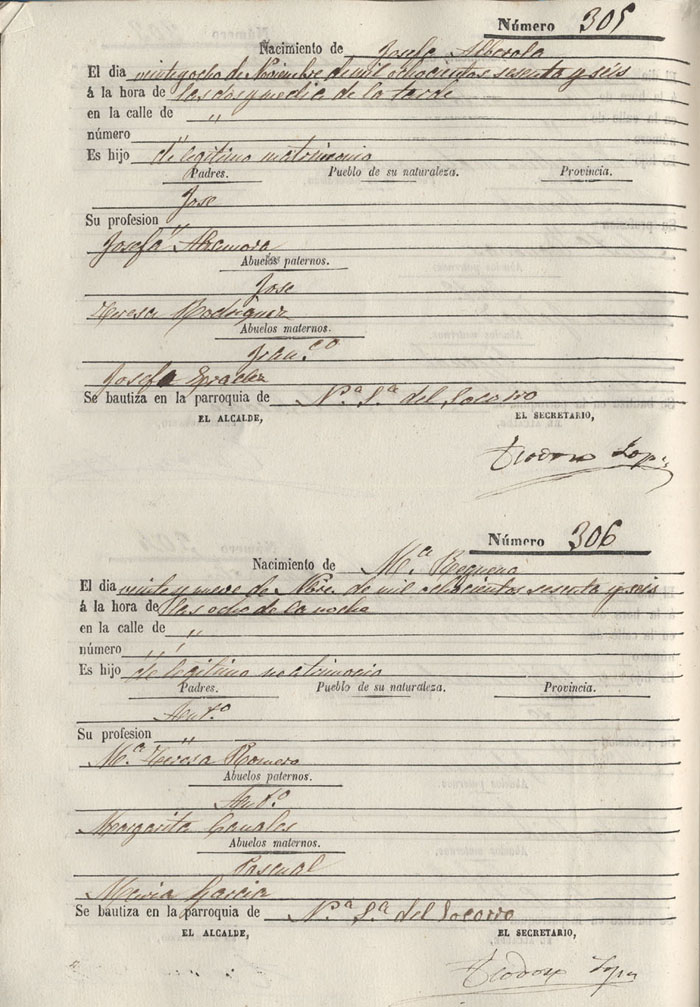 Número 305
Nacimiento de Josefa Alberola
El dia veinte y ocho de Noviembre de mil ochocientos sesenta y seis
á la hora de las dos y media de la tarde
en la calle de "
número "
Es hijo de legitimo matrimonio
Padres. Pueblo de su naturaleza. Provincia.
Jose
Su profesion "
Josefa
Abuelos paternos.
Jose
Teresa Rodriguez
Abuelos maternos.
Fran.co
Josefa
Se bautiza en la parroquia de N.a S.a del Socorro
EL ALCALDE, EL SECRETARIO,
Teodoro Lopez
Número 306
Nacimiento de M.a Requena
El dia veinte y nueve de Nbre. de mil ochocientos sesenta y seis
á la hora de las ocho de la noche
en la calle de "
número "
Es hijo de legitimo matrimonio
Padres. Pueblo de su naturaleza. Provincia.
Ant.o
Su profesion "
M.a Teresa Romero
Abuelos paternos.
Ant.o
Margarita Canales
Abuelos maternos.
Pascual
Maria Garcia
Se bautiza en la parroquia de N.a S.a del Socorro
EL ALCALDE, EL SECRETARIO,
Teodoro Lopez